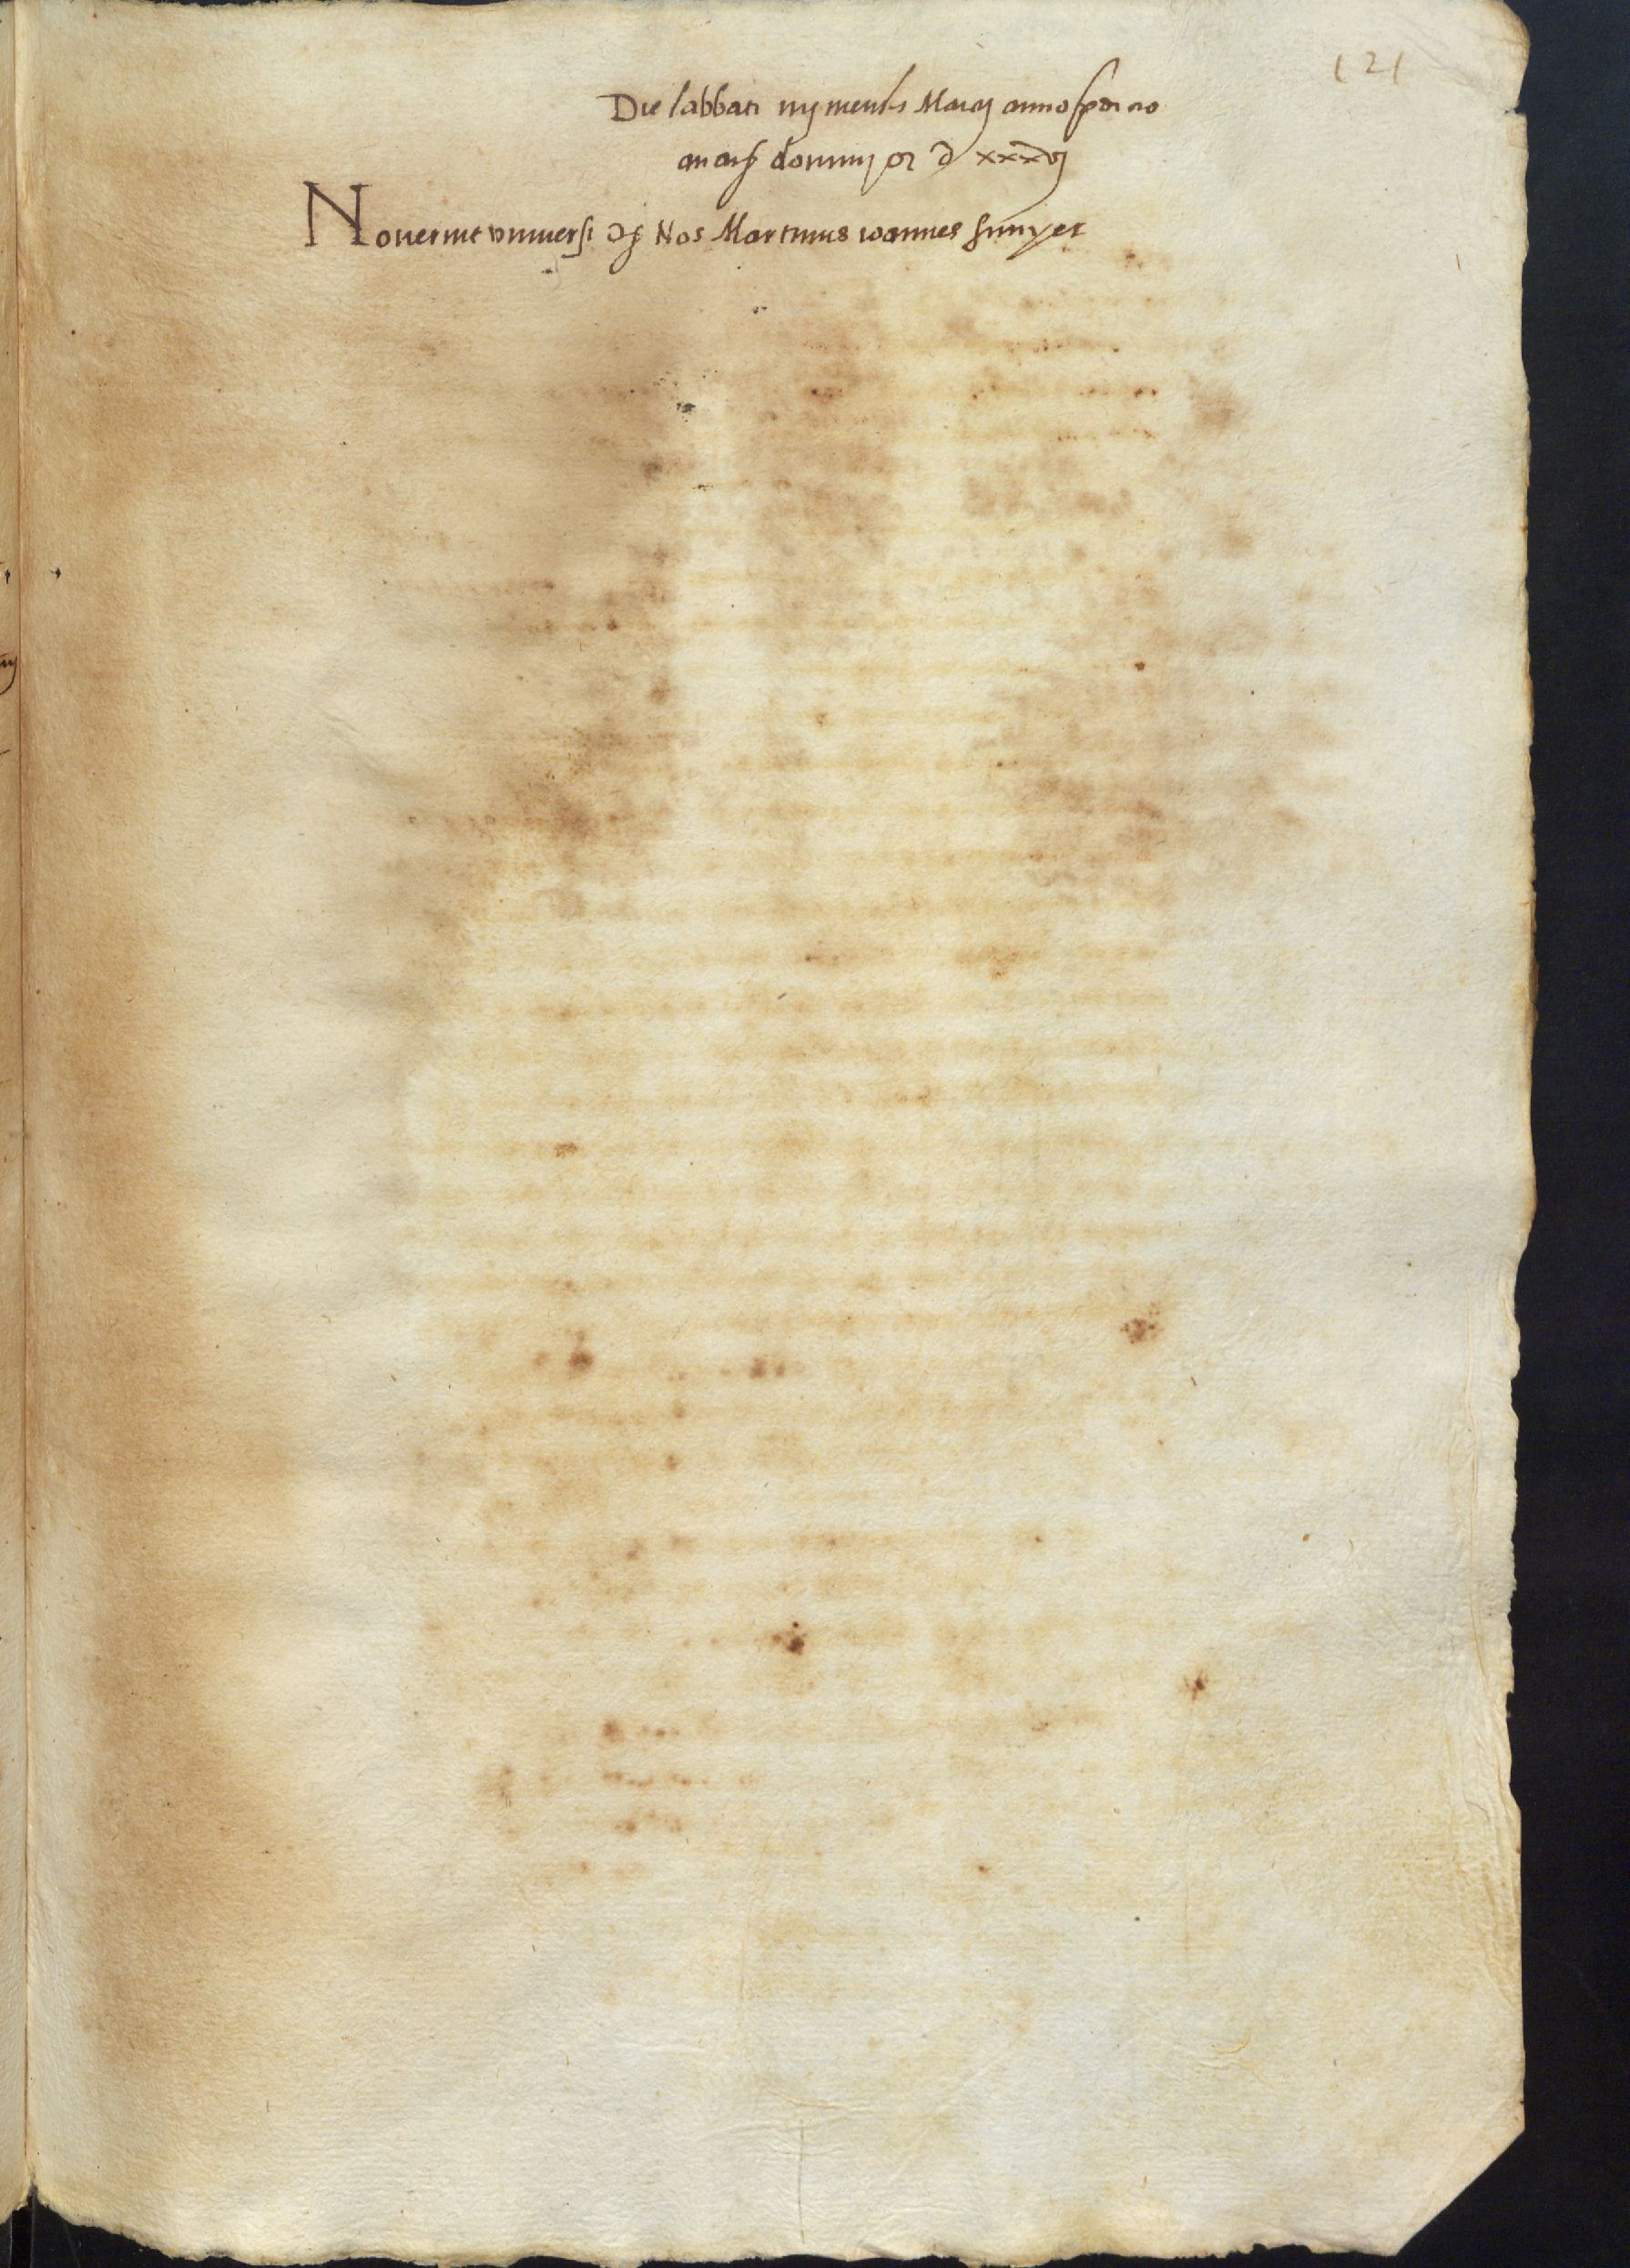 121
Die sabbati iiij mensis Marcij anno predicto
a natȝ domini M D xxxvj
Noverint universi qȝ Nos Martinus ioannes sunyer